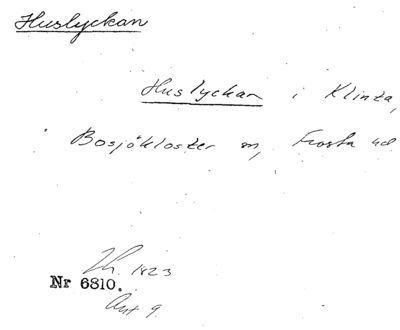 Huslyckan
Huslyckan i Klinta,
Bosjökloster sn, Frosta hd
Lh. 1823
Nr 6810.
Akt 9.